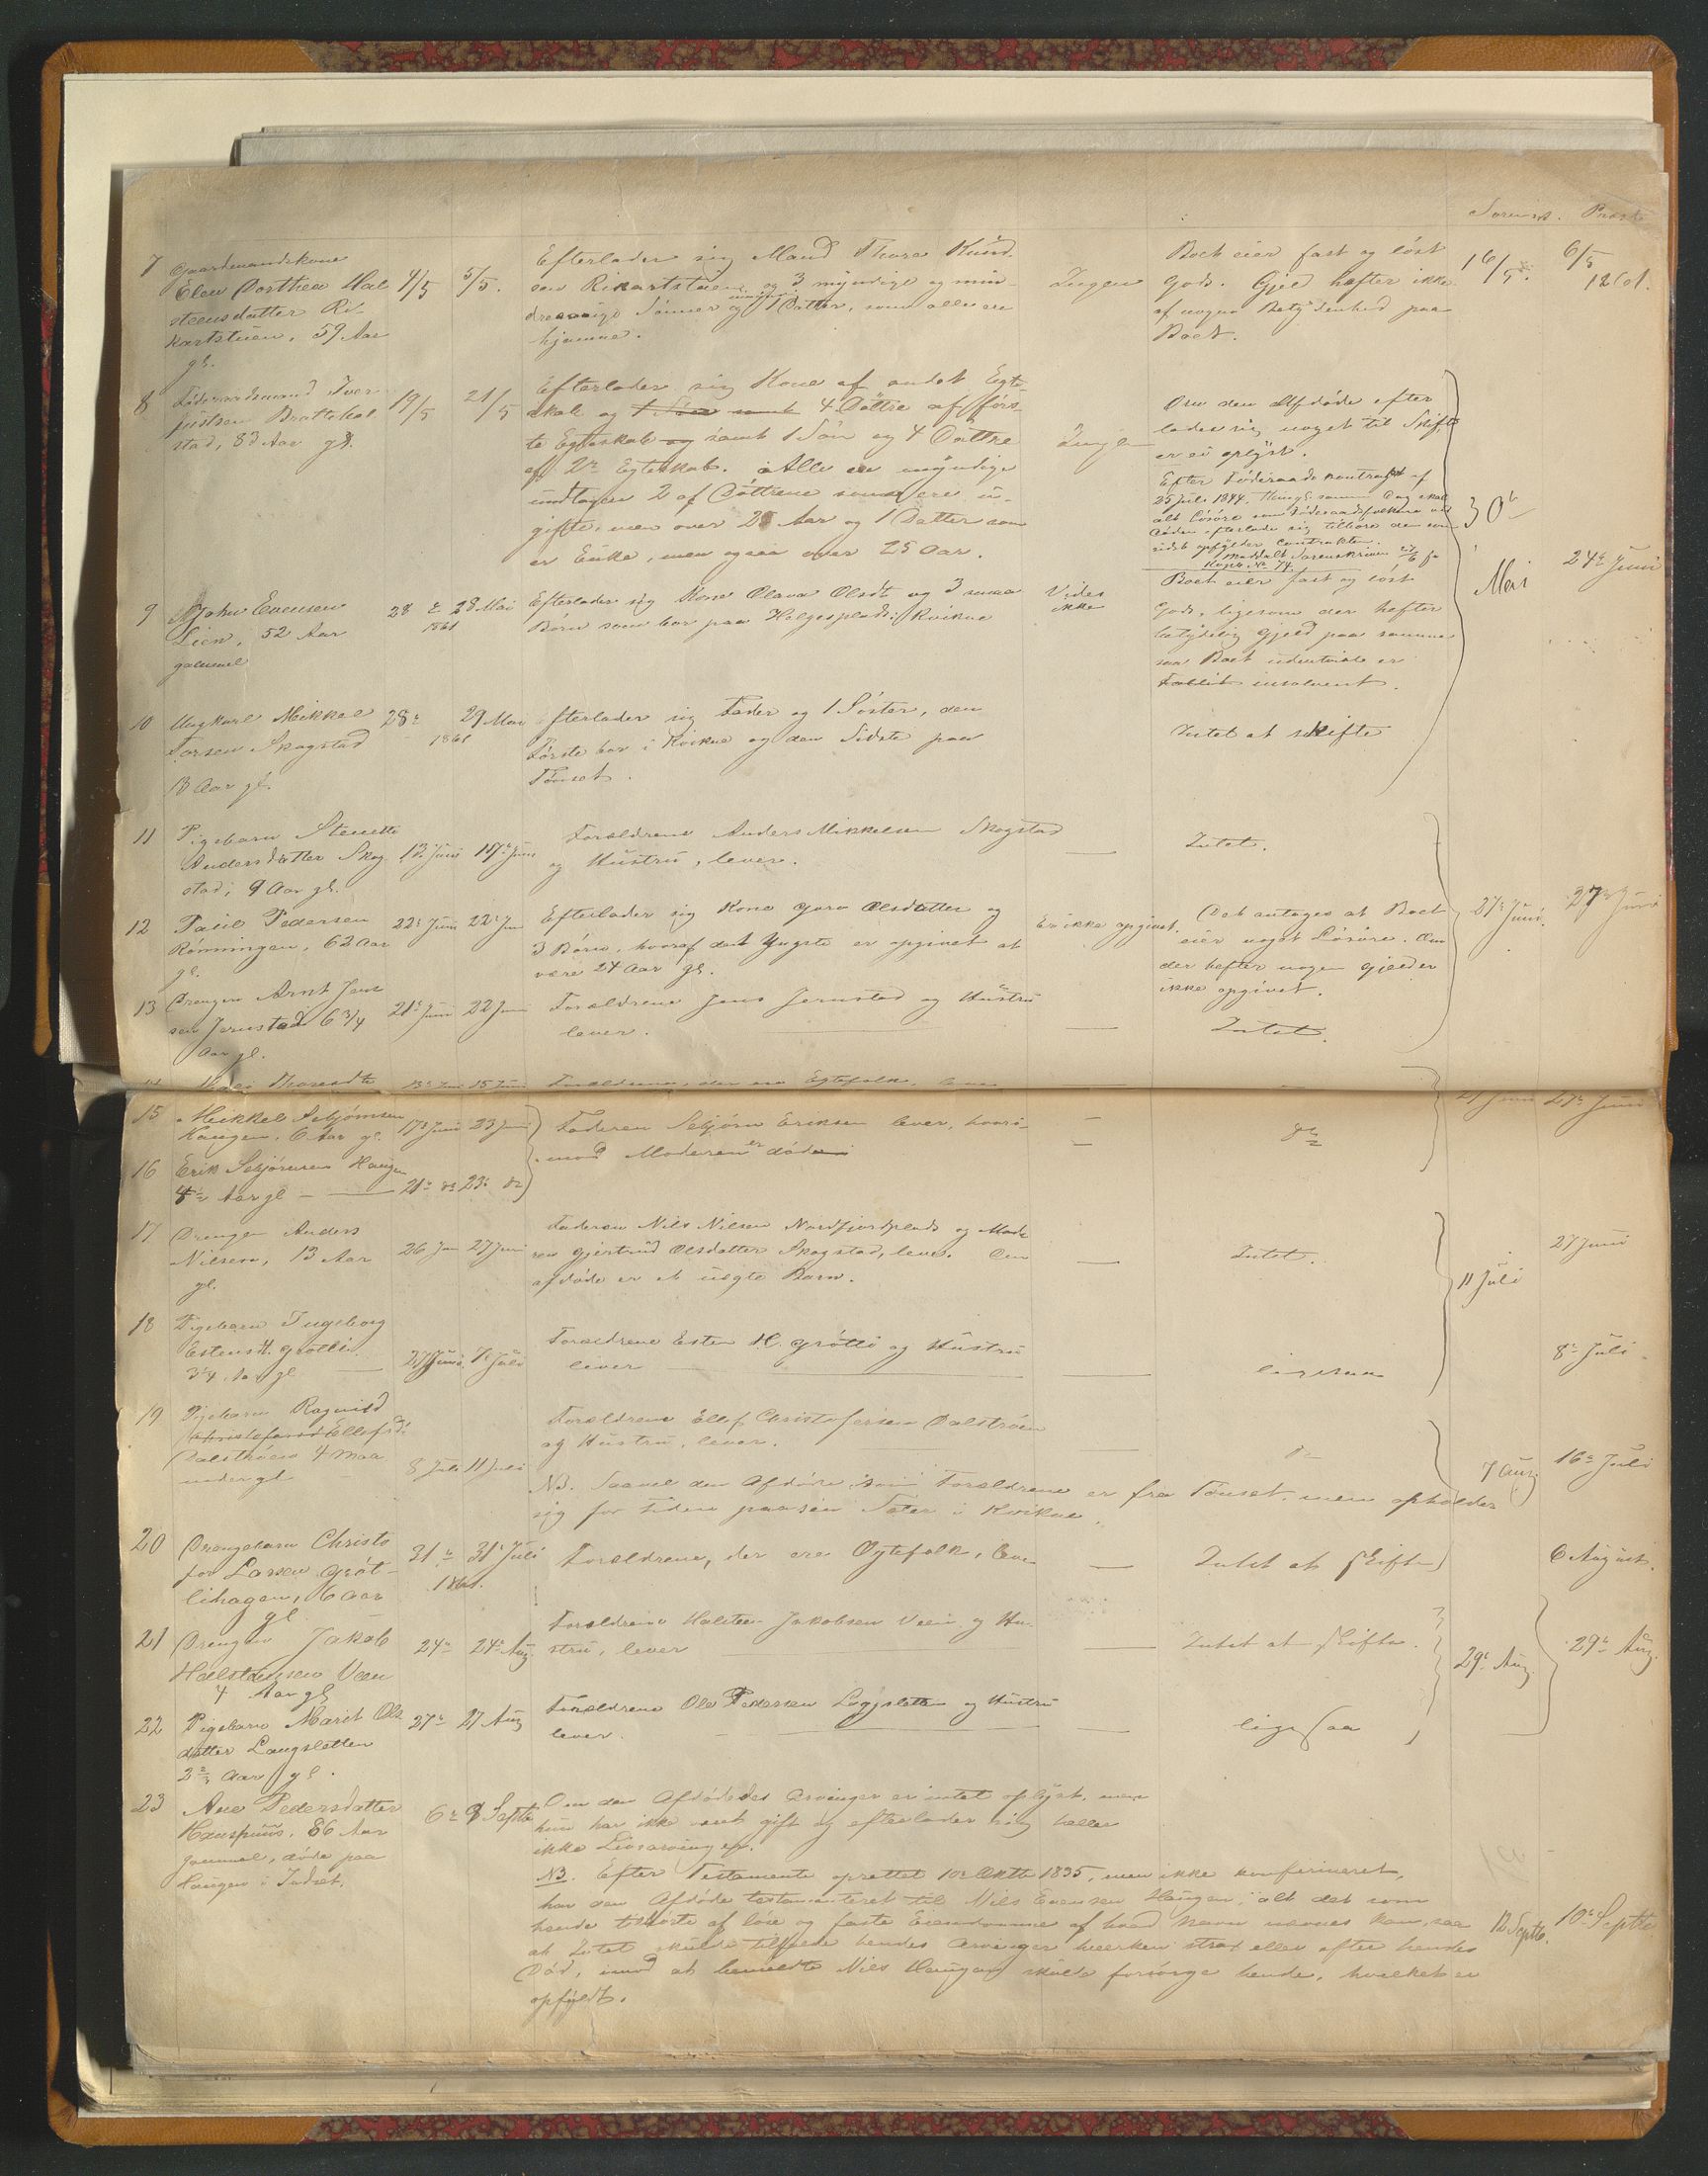 Sorensk. Præste
7 Gaardmandskone
Elen Dorthea Hal
steensdatter Ri-
kartstuen, 59 Aar
gl.
4/5 5/5.
Efterlader sig Mand Thore Knud
sen Rikartstuen og 3 myndige og min
dreaarige Sønner og 1 Datter, som alle ere
hjemme.
Ingen
Boet eier fast og løst
Gods. Gjeld hefter ikke
af nogen Betydenhed paa
Boet.
16/5. 6/5
1861.
8 Føderaadsmand Iver
Brattehal
stad, 83 Aar gl.
19/5 21/5
Efterlader sig Kone af andet Egte-
skab og 1 Søn samt 4 Døttre af førs-
te Egteskab og samt 1 Søn og 4 Døttre
af 2n Egteskab. Alle ere myndige
undtagen 2 af Døttrene som ere u-
gifte, men over 25 Aar og 1 Datter som
er Enke, men ogsaa over 25 Aar.
Ingen
Om den Afdøde efter
lader sig noget til Skifte
er ei oplyst.
Efter Føderaadskontrakt af
25 Juli 1844, Thingl. samme Dag skal
alt Løsøre som Føderaadsfolkene ved
Døden efterlade sig tilhøre den som
sidst opfylder Contrakten.
Meddelt Sorenskriveren
Kopib. No 74.
30te
Mai
24de Juni
9 John Evensen
Lien, 52 Aar
gammel
28 28 Mai
1861
Efterlader sig Kone Olava Olsdt og 3 smaa
Børn som bor paa Helgesplads i Kvikne
Vides
ikke
Boet eier fast og løst
Gods, ligesom der hefter
betydelig Gjeld paa samme
saa Boet udentvivl er
Fallit insolvent.
10 Ungkarl Mikkel
Torsen Skogstad
18 Aar gl.
28de 29 Mai
1861
Efterlader sig Fader og 1 Søster, den
Første bor i Kvikne og den Sidste paa
Tønset.
Intet at skifte
11 Pigebarn Stenette
Andersdatter Skog-
stad, 9 Aar gl.
13de Juni 17de Juni
Forældrene Anders Mikkelsen Skogstad
og Hustru, lever.
Intet.
12 Paul Pedersen
Rønningen, 62 Aar
gl.
22de Juni 22de Jun
Efterlader sig Kone Olsdatter og
3 Børn, hvoraf det Yngste er opgivet at
være 24 Aar gl.
Er ikke opgivet.
Det antages at Boet
eier noget Løsøre. Om
der hefter nogen Gjeld er
ikke opgivet.
27de Juni. 27de Juni
13 Drengen Arnt Jens
sen Jernstad 6 3/4
Aar gl.
21de Juni 22 Juni
Forældrene Jens Jernstad og Hustru
lever.
Intet.
13de Juni 15 Juni Forældrene, der ere Egtefolk, lever
15 Mikkel Sebjørnsen
Haugen, 6 Aar gl. 17de Juni 23 Juni
Faderen Sebjørn Eriksen lever, hvori-
mod Moderen er død
27de Juni
16 Erik Sebjørnsen Haugen
Aar gl 21de 23de
17 Drengen Anders
Nilsen, 13 Aar
gl.
26 Jun 27 Juni
Faderen Nils Nilsen Nordfjordplads og Mode
ren Gjertrud Olsdatter Skogstad, lever. Den
afdøde er et uægte Barn.
Intet.
11 Juli
27 Juni
18 Pigebarn Ingeborg
Estensd. Grøtli.
3/4 Aar gl
27 Juni. 1de Juli
Forældrene Esten H. Grøtli og Hustru
lever
ligesaa
8de Juli
19 Pigebarn Ragnild
Christofersd Ellefsd.
Dalstrøen 4 Maa
neder gl
8 Juli 11 Juli
Forældrene Ellef Christofersen Dalstrøen
og Hustru, lever.
NB. Saavel den Afdøde som Forældrene er fra Tønset, men opholder
sig for Tiden paa sin Sæter i Kvikne.
7 Aug.
16de Juli
20 Drengebarn Christo
for Larsen Grøt-
lihagen, 6 Aar
gl
31te 31te Juli
1861.
Forældrene, der ere Egtefolk, lever
Intet at skifte
6 August.
21 Drengen Jakob
Halstensen Veen
4 Aar gl
24de 24de Aug.
Forældrene Halsten Jakobsen Veen og Hu-
stru, lever
Intet at skifte.
29de Aug. 29de Aug.
22 Pigebarn Marit Ols
datter Langsletten
2 2/3 Aar gl.
27de 27 Aug
Forældrene Ole Pedersen Langsletten og Hustru
lever.
ligesaa
23 Ane Pedersdatter
86 Aar
gammel, døde paa
Haugen i Indset.
6te 9 Septbr
Om den Afdødedes Arvinger er intet oplyst, men
hun har ikke været gift og efterlader sig heller
ikke Livsarvinger.
NB. Efter Testamente oprettet 10de Oktbr 1835, men ikke konfirmeret,
har den Afdøde testamenteret til Nils Evensen Haugen, alt det som
hende tilhørte af løse og faste Eiendomme af hvad Navn nævnes kan, saa
at Intet skulde tilfalde hendes Arvinger hverken strax eller efter hendes
Død, imod at bemeldte Nils Haugen skulde forsørge hende, hvilket er
opfyldt.
12 Septb. 10de Septbr